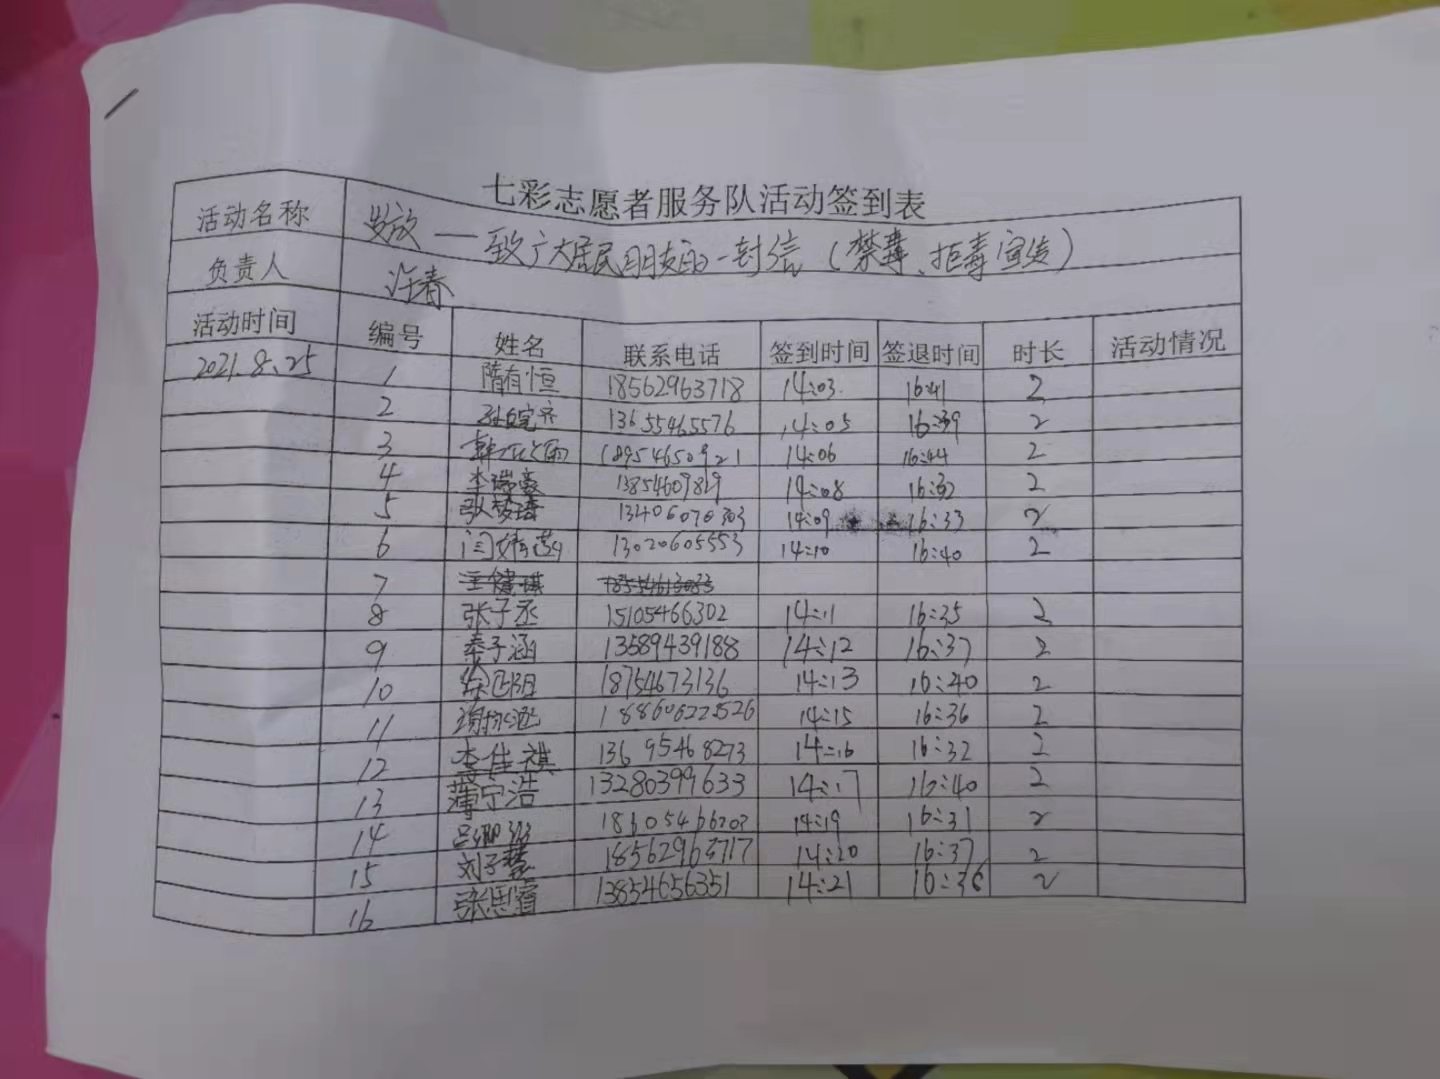 七彩志愿者服务队活动签到表
活动名称 发放——致广大居民朋友的一封信（禁毒、拒毒宣传）
负责人 许春
活动时间 编号 姓名 联系电话 签到时间 签退时间 时长 活动情况
2021.8.25 1 隋有恒 18562963718 14:03 16:41 2
2 13655465576 14:05 16:39 2
3 18954650921 14:06 16:44 2
4 李瑞豪 13854609819 14:08 16:32 2
5 张梦瑶 13406070303 14:09 16:33 2
6 13020605553 14:10 16:40 2
7 王健琪 18554613033
8 张子丞 15105466302 14:11 16:35 2
9 秦子涵 13589439188 14:12 16:37 2
10 18754673136 14:13 16:40 2
11 14:15 16:36 2
12 李佳祺 13695468273 14:16 16:32 2
13 薄宁浩 13280399633 14:17 16:40 2
14 14:19 16:31 2
15 刘子慧 18562963717 14:20 16:37 2
16 张思睿 13854656351 14:21 16:36 2